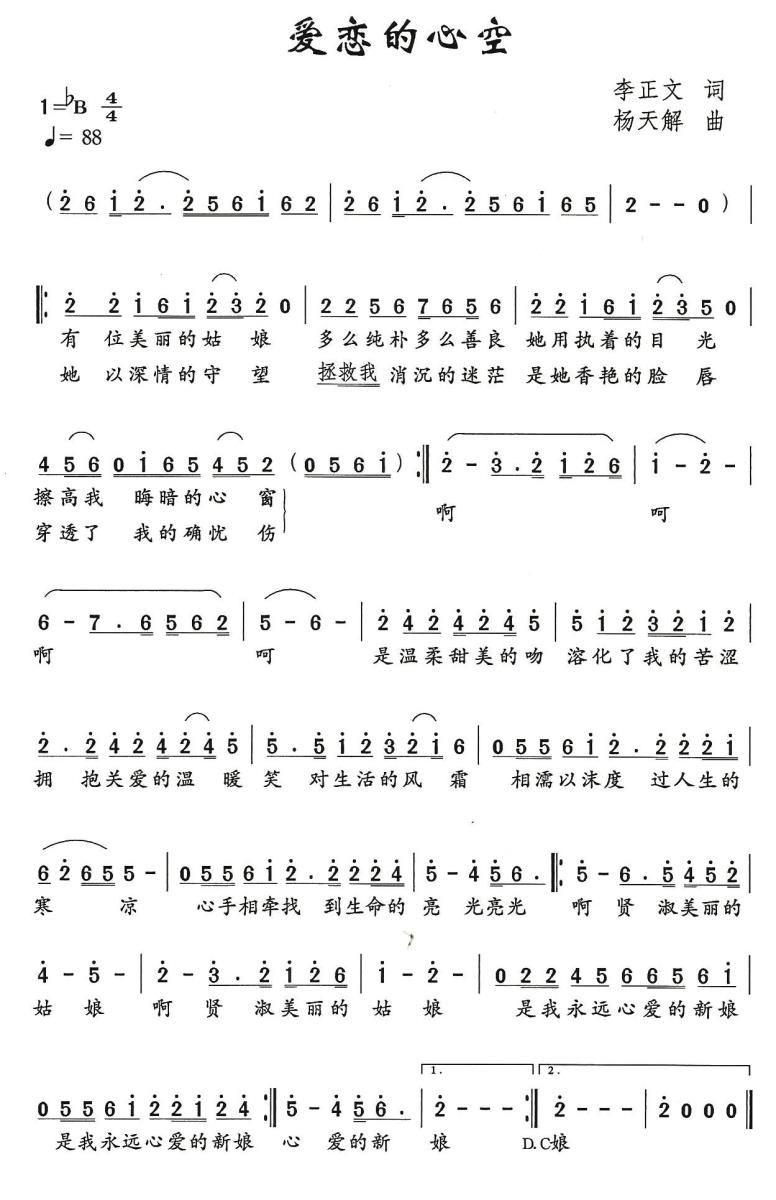 爱恋的心空
1=♭B 4/4
李正文 词
♩= 88
杨天解 曲
(2 6 1 2 . 2 5 6 1 6 2 | 2 6 1 2 . 2 5 6 1 6 5 | 2 - - 0 ) |
‖: 2 2 1 6 1 2 3 2 0 | 2 2 5 6 7 6 5 6 | 2 2 1 6 1 2 3 5 0 |
有 位美丽的姑 娘 多么纯朴多么善良 她用执着的目 光
她 以深情的守 望 拯救我 消沉的迷茫 是她香艳的脸 唇
4 5 6 0 1 6 5 4 5 2 ( 0 5 6 1 ) :‖ 2 - 3 . 2 1 2 6 | 1 - 2 - |
擦高我 晦暗的心 窗 啊 呵
穿透了 我的确忧 伤
6 - 7 . 6 5 6 2 | 5 - 6 - | 2 4 2 4 2 4 5 | 5 1 2 3 2 1 2 |
啊 呵 是温柔甜美的吻 溶化了我的苦涩
2 . 2 4 2 4 2 4 5 | 5 . 5 1 2 3 2 1 6 | 0 5 5 6 1 2 . 2 2 2 1 |
拥 抱关爱的温 暖 笑 对生活的风 霜 相濡以沫度 过人生的
6 2 6 5 5 - | 0 5 5 6 1 2 . 2 2 2 4 | 5 - 4 5 6 . ‖: 5 - 6 . 5 4 5 2 |
寒 凉 心手相牵找 到生命的 亮 光亮光 啊 贤 淑美丽的
4 - 5 - | 2 - 3 . 2 1 2 6 | 1 - 2 - | 0 2 2 4 5 6 6 5 6 1 |
姑 娘 啊 贤 淑美丽的 姑 娘 是我永远心爱的新娘
1. 2.
0 5 5 6 1 2 2 1 2 4 :‖ 5 - 4 5 6 . | 2 - - - :‖ 2 - - - | 2 0 0 0 ‖
是我永远心爱的新娘 心 爱的新 娘 D.C娘